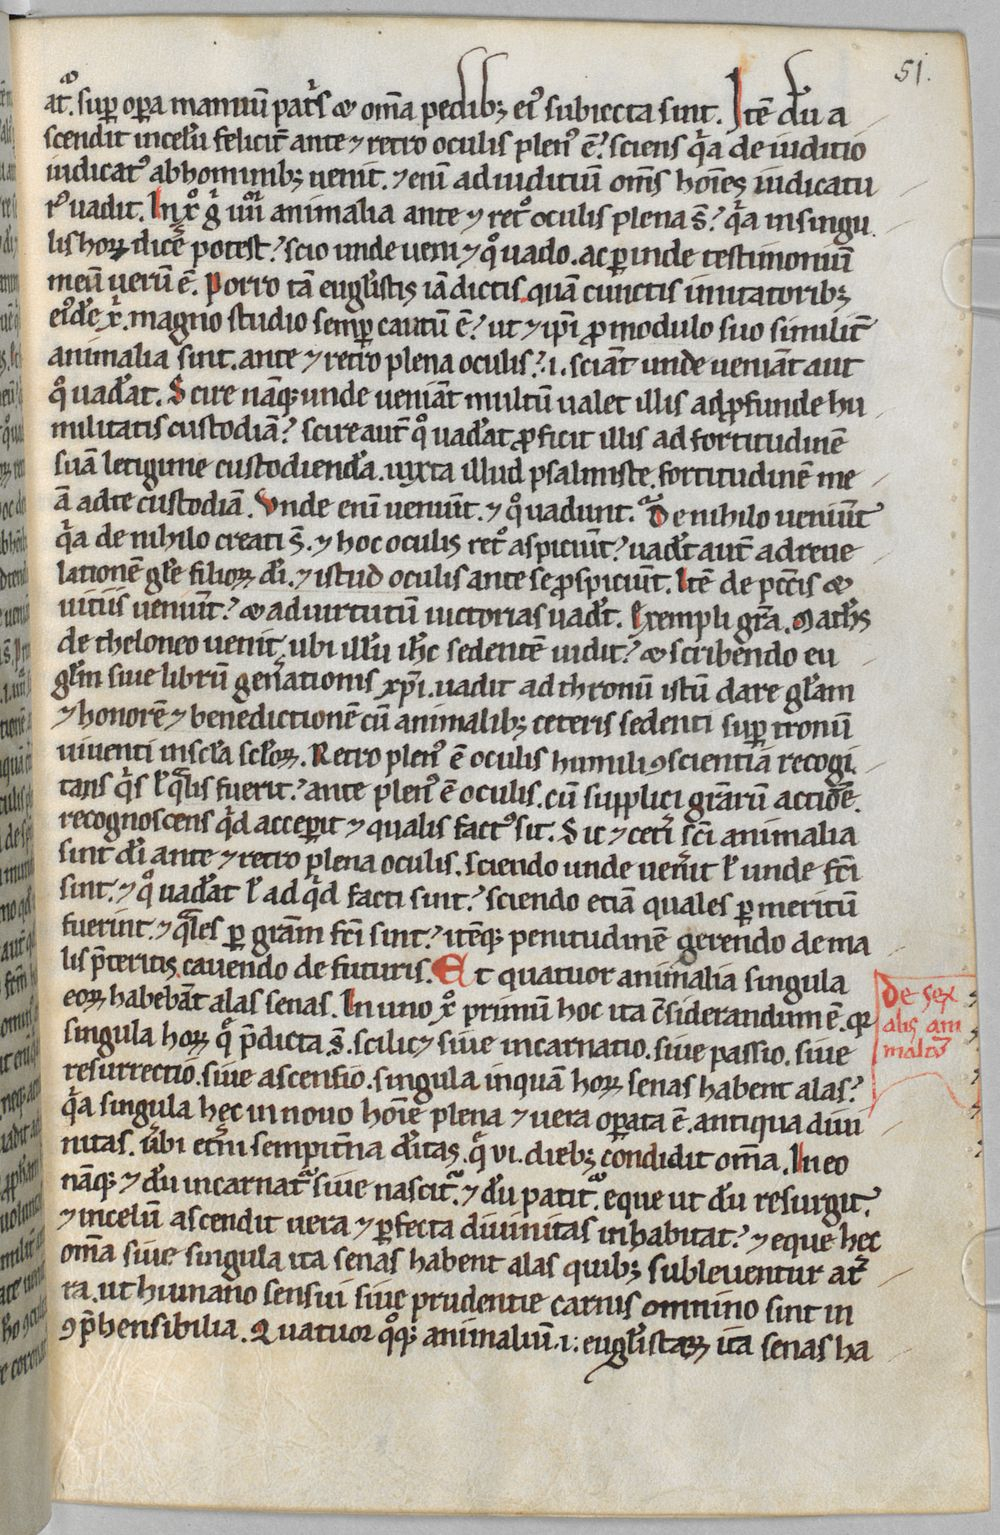 51.
at᷒. sup̱ op̱a manuū pat͛s ⁊ om̄a pedib; ei᷒ subiecta sint. Itē dū a
scendit incelū felicit͛ ante ⁊ retro oculis plen᷒ ē? sciens q͛a de iuditio
iudicat᷒ abhominib; uenit. ⁊ enī adiuditiū om̄s hoīes iudicatu
r᷒ uadit. In xͦ g͛ iiiiͦr animalia ante ⁊ retͦ oculis plena s̄? q͛a insingu
lis hoꝝ dicē potest? scio unde ueni ⁊ qͦ uado. ac ꝑinde testimoniū
meū uerū ē. Porro tā eugl̄istis iādictis quā cunctis imitatorib;
ei᷒dē x͛. magno studio semꝑ cautū ē? ut ⁊ ip̄i ꝓ modulo suo similit͛
animalia sint. ante ⁊ retro plena oculis? .i. sciāt unde ueniāt aut
qͦ uadāt. Scire nāq; unde ueniāt multū ualet illis adꝓfunde hu
militatis custodiā? scire aut̄ qͦ uadāt ꝓficit illis ad fortitudinē
suā letigune custodienda. iuxta illud psalmiste. fortitudinē me
ā adte custodiā. Vnde enī ueniunt. ⁊ qͦ uadunt. De nihilo ueniūt
q͛a de nihilo creati s̄. ⁊ hoc oculis retͦ aspiciūt? uadt̄ aut̄ adreue
lationē gl̄e filioꝝ dī. ⁊ istud oculis ante se ꝓspiciūt. Itē de pcc̄is ⁊
uitiis ueniūt? ⁊ aduirtutū uictorias uadt̄. Exempli gr̄a. Math̄s
de theloneo uenit. ubi illū ih̄c sedentē uidit? ⁊ scribendo eu
gl̄m siue librū gen͛ationis xp̄i. uadit ad thronū istū dare gl̄am
⁊ honorē ⁊ benedictionē cū animalib; ceteris sedenti suꝑ tronū
uiuenti inscl̄a scl̄oꝝ. Retro plen᷒ ē oculis humili ꝯscientia recogi
tans q͛s ł q̄lis fuerit? ante plen᷒ ē oculis. cū supplici gr̄arū actiōē
recognoscens q͛d acceꝑit ⁊ qualis fact᷒ sit. Sic ⁊ cet͛i sc̄i animalia
sint dī ante ⁊ retro plena oculis. sciendo unde uen͛it ł unde fc̄i
sint. ⁊ qͦ uadāt ł ad q͛d facti sunt? sciendo etiā quales ꝑ meritū
fuerint. ⁊ q̄les ꝑ gr̄am fc̄i sint? itēq; penitudinē gerendo de ma
lis p̄teritis cauendo de futuris. Et quatuor animalia singula
eoꝝ habebāt alas senas. In uno xͦ primū hoc ita c̄siderandum ē. qꝛ
singula hoꝝ q̄ p̄dicta s̄. scilic⁊ siue incarnatio. siue passio. siue
resurrectio. siue ascensio. singula inquā hoꝝ senas habent alas?
q͛a singula hec in nouo hoīe plena ⁊ uera oꝑata ē. antiqua diui
nitas. u͛bi et͛ni sempit͛na dītas. q̄ vi. dieb; condidit om̄a. In eo
nāq; ⁊ dū incarnat͛ siue nascit͛. ⁊ dū patit͛. eque ut dū resurgit.
⁊ incelū ascendit uera ⁊ ꝑfecta diuinitas inhabitat? ⁊ eque hec
om̄a siue singula ita senas habent alas quib; subleuentur at͛
ra. ut humano sensui siue prudentie carnis omnino sint in
ꝯp̄hensibilia. Quatuor qͦq; animaliū .i. eugl̄istaꝝ ita senas ha
De sex
alis ani
maliū